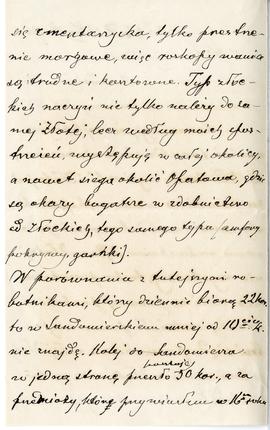 się cmentarzyska, tylko przestrze-
nie morgowe, więc rozkopywania
są trudne i kosztowne. Typ złoc-
kich naczyń nie tylko należy do sa-
mej Złotej, lecz według moich spos-
trzeżeń, występują w całej okolicy,
a nawet sięga okolic Opatowa, gdzie
są okazy bogatsze w zdobnictwo
od Złockich, tego samego typu (amfory
pokrywy, garnki).
W porównaniu z tutejszymi ro-
botnikami, którzy dziennie biorą 22 kor.
to w Sandomierskiem mniej od 10
nie znajdę. Kolej do Sandomierza
w jedną stronę 50 kor., a za
przedmioty, które przywiozłem w 16